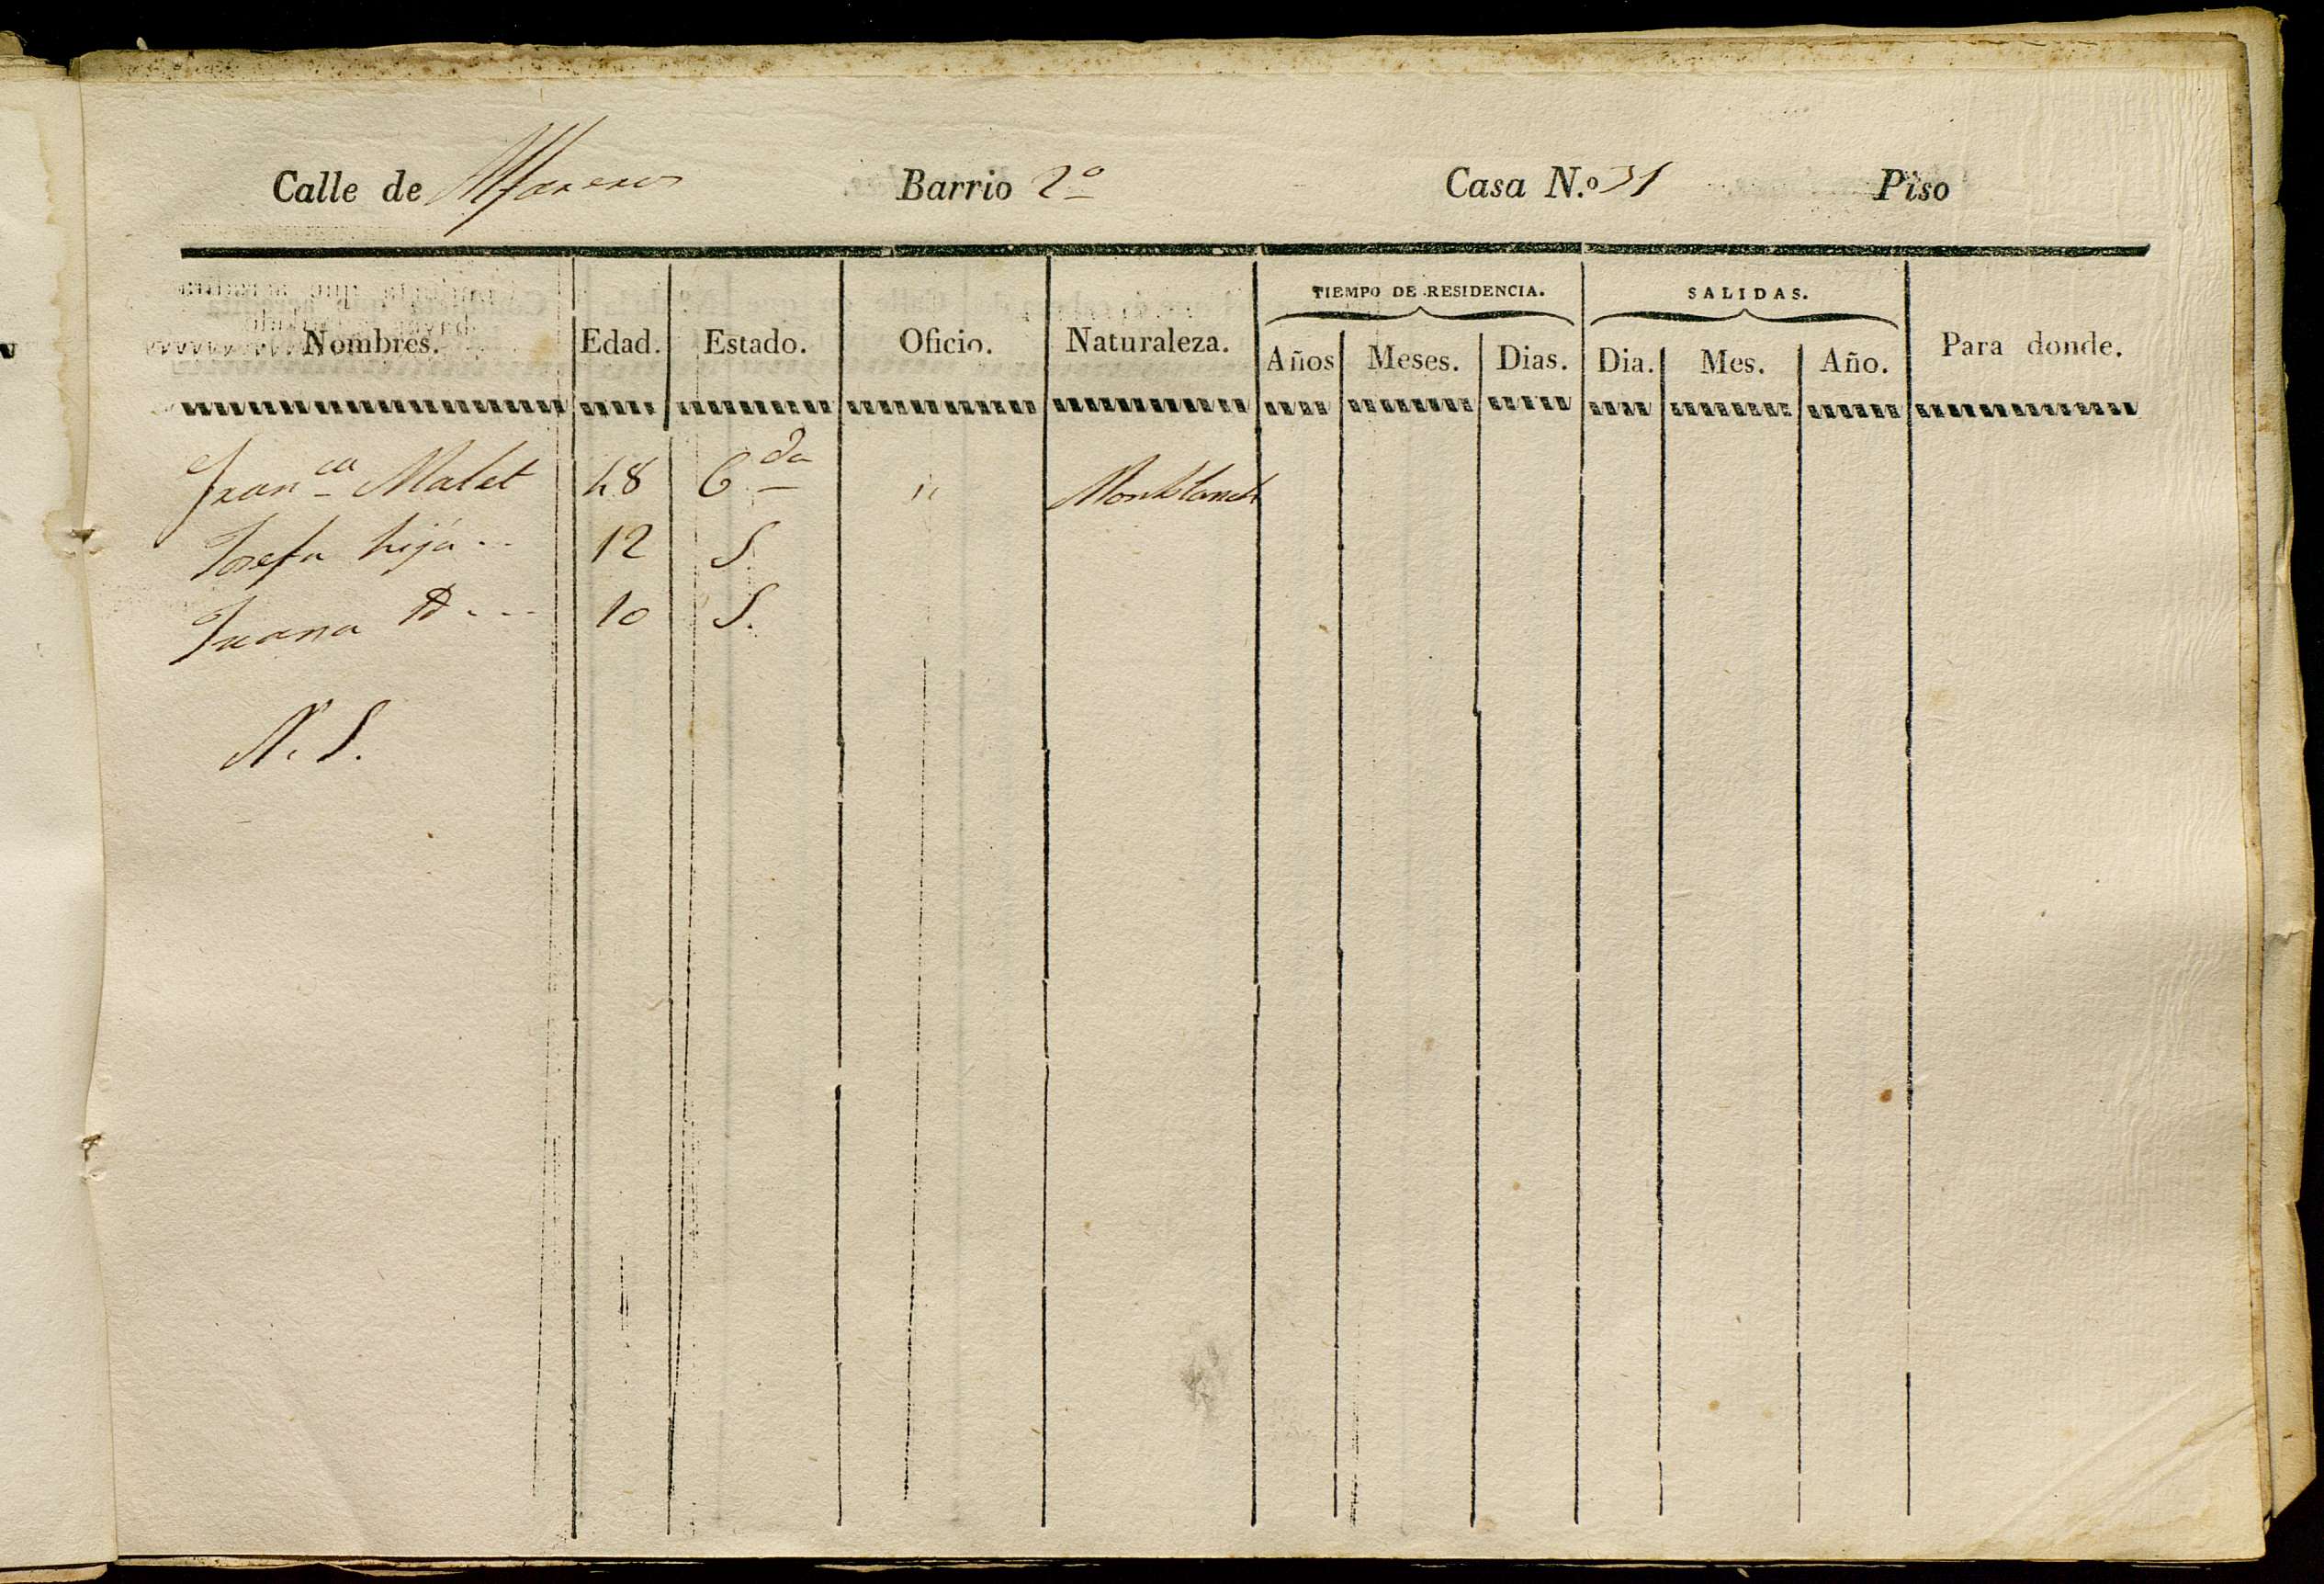 Calle de Alfareros Barrio 2º Casa N.º 31 Piso
TIEMPO DE RESIDENCIA. SALIDAS.
Nombres. Edad. Estado. Oficio. Naturaleza. Años Meses. Dias. Dia. Mes. Año. Para donde.
Franca Malet 48 Cda " Montblanch
Josefa hija 12 S.
Juana Id 10 S.
N. S.